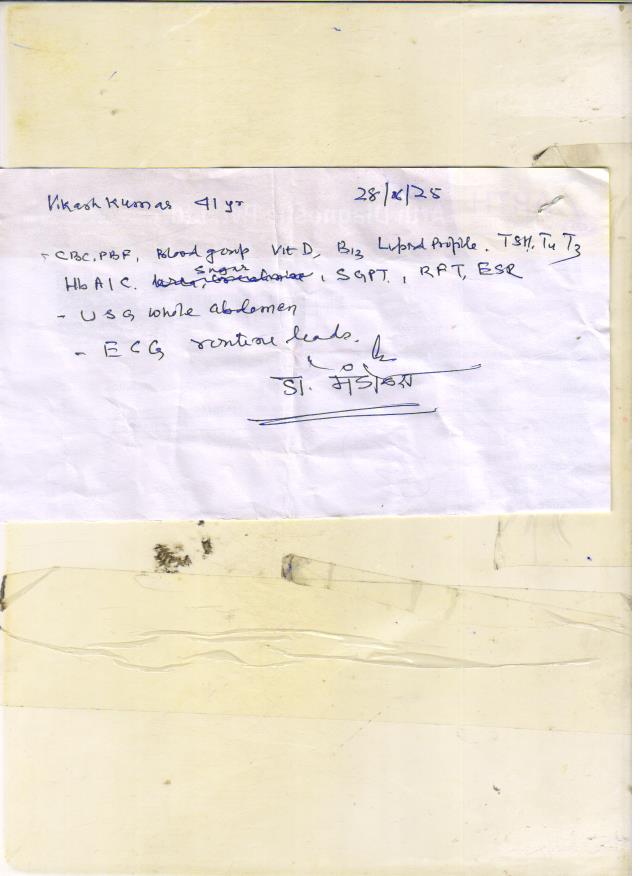 Vikash Kumar 41 yr 28/8/25
- CBC, PBF, Blood group Vit D, B12 Lipid Profile, TSH, T4 T3
HbA1C. Sugar, SGPT, RFT, ESR
- USG whole abdomen
- ECG routine leads.
डा.